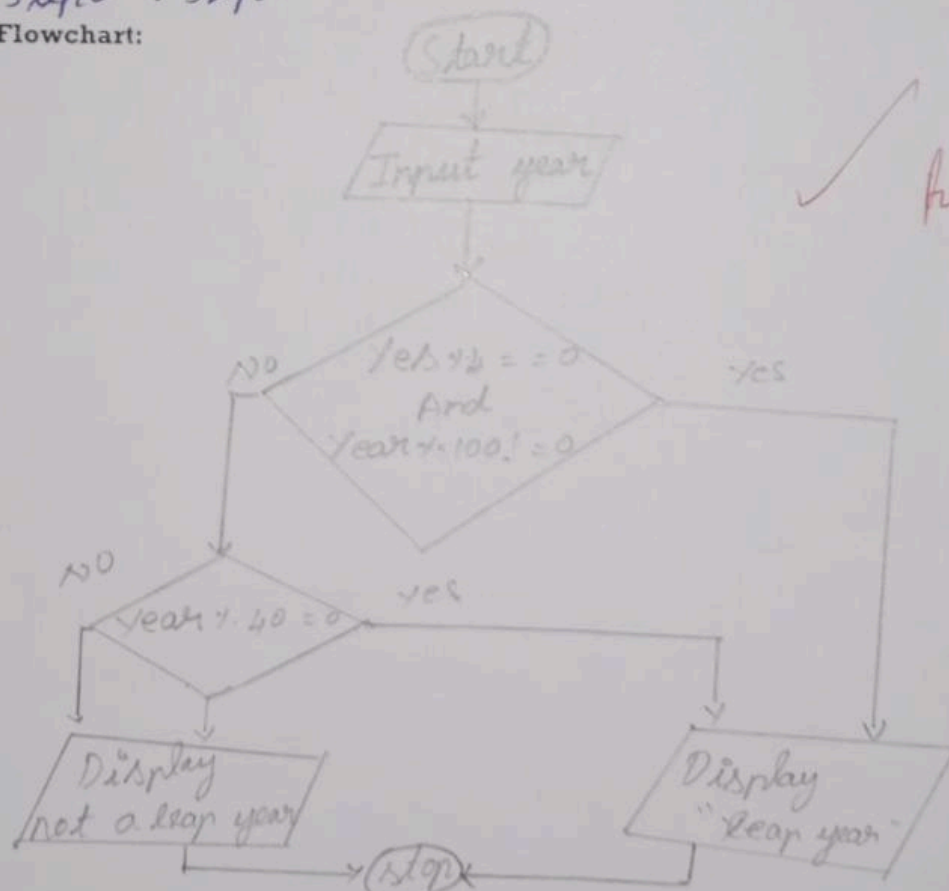 Flowchart:
Start
Input year
Yes % 4 = = 0
And
Year % 100! = 0
NO
yes
year % 40 = 0
NO
yes
Display
not a leap year
Display
"leap year"
stop